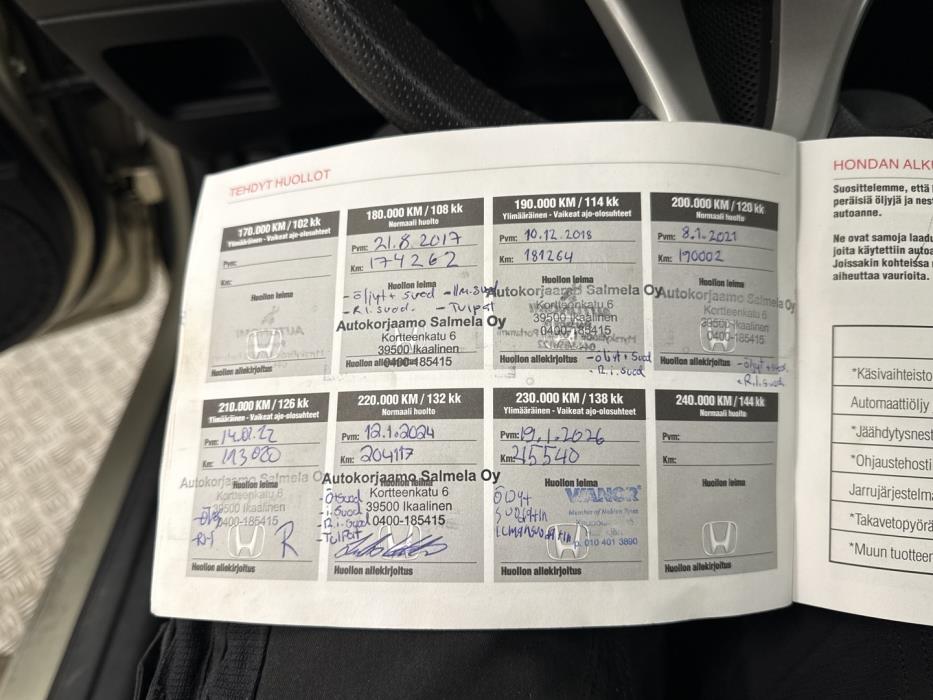 TEHDYT HUOLLOT
170.000 KM / 102 kk
Ylimääräinen - Vaikeat ajo-olosuhteet
Pvm:
Km:
Huollon leima
Huollon allekirjoitus
180.000 KM / 108 kk
Normaali huolto
Pvm: 21.8.2017
Km: 174262
Huollon leima
- öljyt + suod - Ilm.suod
- R.i. suod. - Tulpat
Autokorjaamo Salmela Oy
Kortteenkatu 6
39500 Ikaalinen
0400-185415
Huollon allekirjoitus
190.000 KM / 114 kk
Ylimääräinen - Vaikeat ajo-olosuhteet
Pvm: 10.12.2018
Km: 181264
Huollon leima
Autokorjaamo Salmela Oy
Kortteenkatu 6
39500 Ikaalinen
0400-185415
Huollon allekirjoitus
- öljyt + suod
- R.i. suod
200.000 KM / 120 kk
Normaali huolto
Pvm: 8.1.2021
Km: 190002
Huollon leima
Autokorjaamo Salmela Oy
Kortteenkatu 6
39500 Ikaalinen
0400-185415
Huollon allekirjoitus
- R.i. suod
210.000 KM / 126 kk
Ylimääräinen - Vaikeat ajo-olosuhteet
Pvm:
Km:
Autokorjaamo Salmela Oy
Huollon leima
Kortteenkatu 6
0400-185415
R
Huollon allekirjoitus
220.000 KM / 132 kk
Normaali huolto
Pvm: 12.1.2024
Km: 204117
Autokorjaamo Salmela Oy
Huollon leima
Kortteenkatu 6
39500 Ikaalinen
0400-185415
- i. suod
- R.i. suod
- Tulpat
Huollon allekirjoitus
230.000 KM / 138 kk
Ylimääräinen - Vaikeat ajo-olosuhteet
Pvm: 19.1.2026
Km:
Huollon leima
VIANOR
Member of Nokian Tyres
p. 010 401 3890
Huollon allekirjoitus
240.000 KM / 144 kk
Normaali huolto
Pvm:
Km:
Huollon leima
Huollon allekirjoitus
HONDAN ALKU
Suosittelemme, että
peräisiä öljyjä ja nes
autoanne.
Ne ovat samoja laadu
joita käytettiin autoa
Joissakin kohteissa
aiheuttaa vaurioita.
*Käsivaihteisto
Automaattiöljy
*Jäähdytysnest
*Ohjaustehosti
Jarrujärjestelmä
*Takavetopyörä
*Muun tuotteen